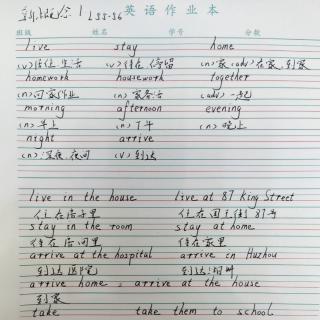 新概念1 L55-56 英语作业本
班级 姓名 学号 分数
live stay home
(v)居住,生活 (v)待在,停留 (n)家(adv)在家,到家
homework housework together
(n)回家作业 (n)家务活 (adv)一起
morning afternoon evening
(n)早上 (n)下午 (n)晚上
night arrive
(n)深夜,夜间 (v)到达
live in the house live at 87 King Street
住在房子里 住在国王街87号
stay in the room stay at home
待在房间里 待在家里
arrive at the hospital arrive in Huzhou
到达医院 到达湖州
arrive home = arrive at the house
到家
take take them to school